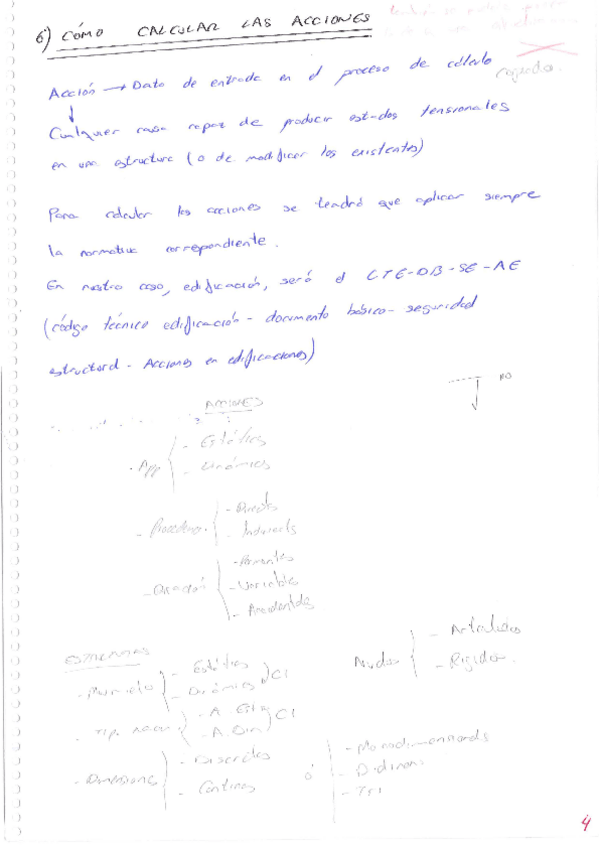 6) CÓMO CALCULAR LAS ACCIONES
Acción → Dato de entrada en el proceso de cálculo
Cualquier causa capaz de producir estados tensionales
en una estructura (o de modificar los existentes)
Para calcular las acciones se tendrá que aplicar siempre
la normativa correspondiente.
En nuestro caso, edificación, será el CTE-DB-SE-AE
(código técnico edificación - documento básico - seguridad
estructural - Acciones en edificaciones)
ACCIONES
- App
- Estática
- Dinámica
- Procedencia
- Directa
- Indirecta
- Duración
- Permanentes
- Variables
- Accidentales
ESTRUCTURAS
- Estática
- Dinámica
CI
- A. Está
- A. Din
CI
- Dimensione
- Discretas
- Continuas
ó
- Monodimensionales
- Bidimen
- Tri
Nudos
- Articulados
- Rígidos.
4